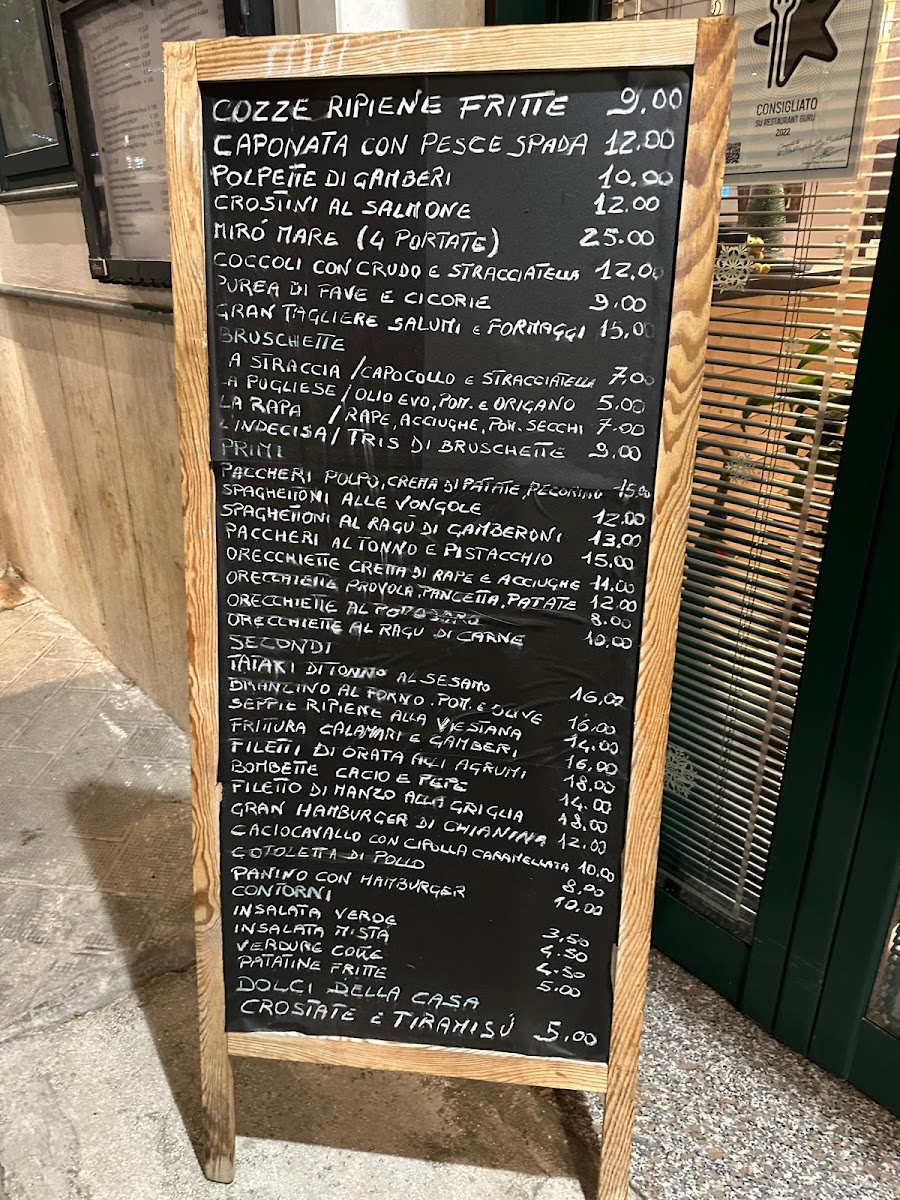 COZZE RIPIENE FRITTE 9.00
CAPONATA CON PESCE SPADA 12.00
POLPETTE DI GAMBERI 10.00
CROSTINI AL SALMONE 12.00
MIRÓ MARE (4 PORTATE) 25.00
COCCOLI CON CRUDO E STRACCIATELLA 12.00
PUREA DI FAVE E CICORIE 9.00
GRAN TAGLIERE SALUMI E FORMAGGI 15.00
BRUSCHETTE
A STRACCIA / CAPOCOLLO E STRACCIATELLA 7.00
LA PUGLIESE / OLIO EVO, POM. E ORIGANO 5.00
LA RAPA / RAPE, ACCIUGHE, POM. SECCHI 7.00
L'INDECISA / TRIS DI BRUSCHETTE 9.00
PRIMI
PACCHERI POLPO, CREMA DI PATATE, PECORINO 15.00
SPAGHETTONI ALLE VONGOLE 12.00
SPAGHETTONI AL RAGU DI GAMBERONI 13.00
PACCHERI AL TONNO E PISTACCHIO 15.00
ORECCHIETTE CREMA DI RAPE E ACCIUGHE 11.00
ORECCHIETTE PROVOLA, PANCETTA, PATATE 12.00
ORECCHIETTE AL POMODORO 8.00
ORECCHIETTE AL RAGU DI CARNE 10.00
SECONDI
TATAKI DI TONNO AL SESAMO 16,00
BRANZINO AL FORNO. POM. E OLIVE 16.00
SEPPIE RIPIENE ALLA VIESTANA 14.00
FRITTURA CALAMARI E GAMBERI 16,00
FILETTI DI ORATA AGLI AGRUMI 18.00
BOMBETTE CACIO E PEPE 14.00
FILETTO DI MANZO ALLA GRIGLIA 18.00
GRAN HAMBURGER DI CHIANINA 12.00
CACIOCAVALLO CON CIPOLLA CARAMELLATA 10.00
COTOLETTA DI POLLO 8.00
PANINO CON HAMBURGER 10.00
CONTORNI
INSALATA VERDE 3,50
INSALATA MISTA 4.50
VERDURE COTTE 4.50
PATATINE FRITTE 5.00
DOLCI DELLA CASA
CROSTATE E TIRAMISÚ 5,00
CONSIGLIATO
SU RESTAURANT GURU
2022